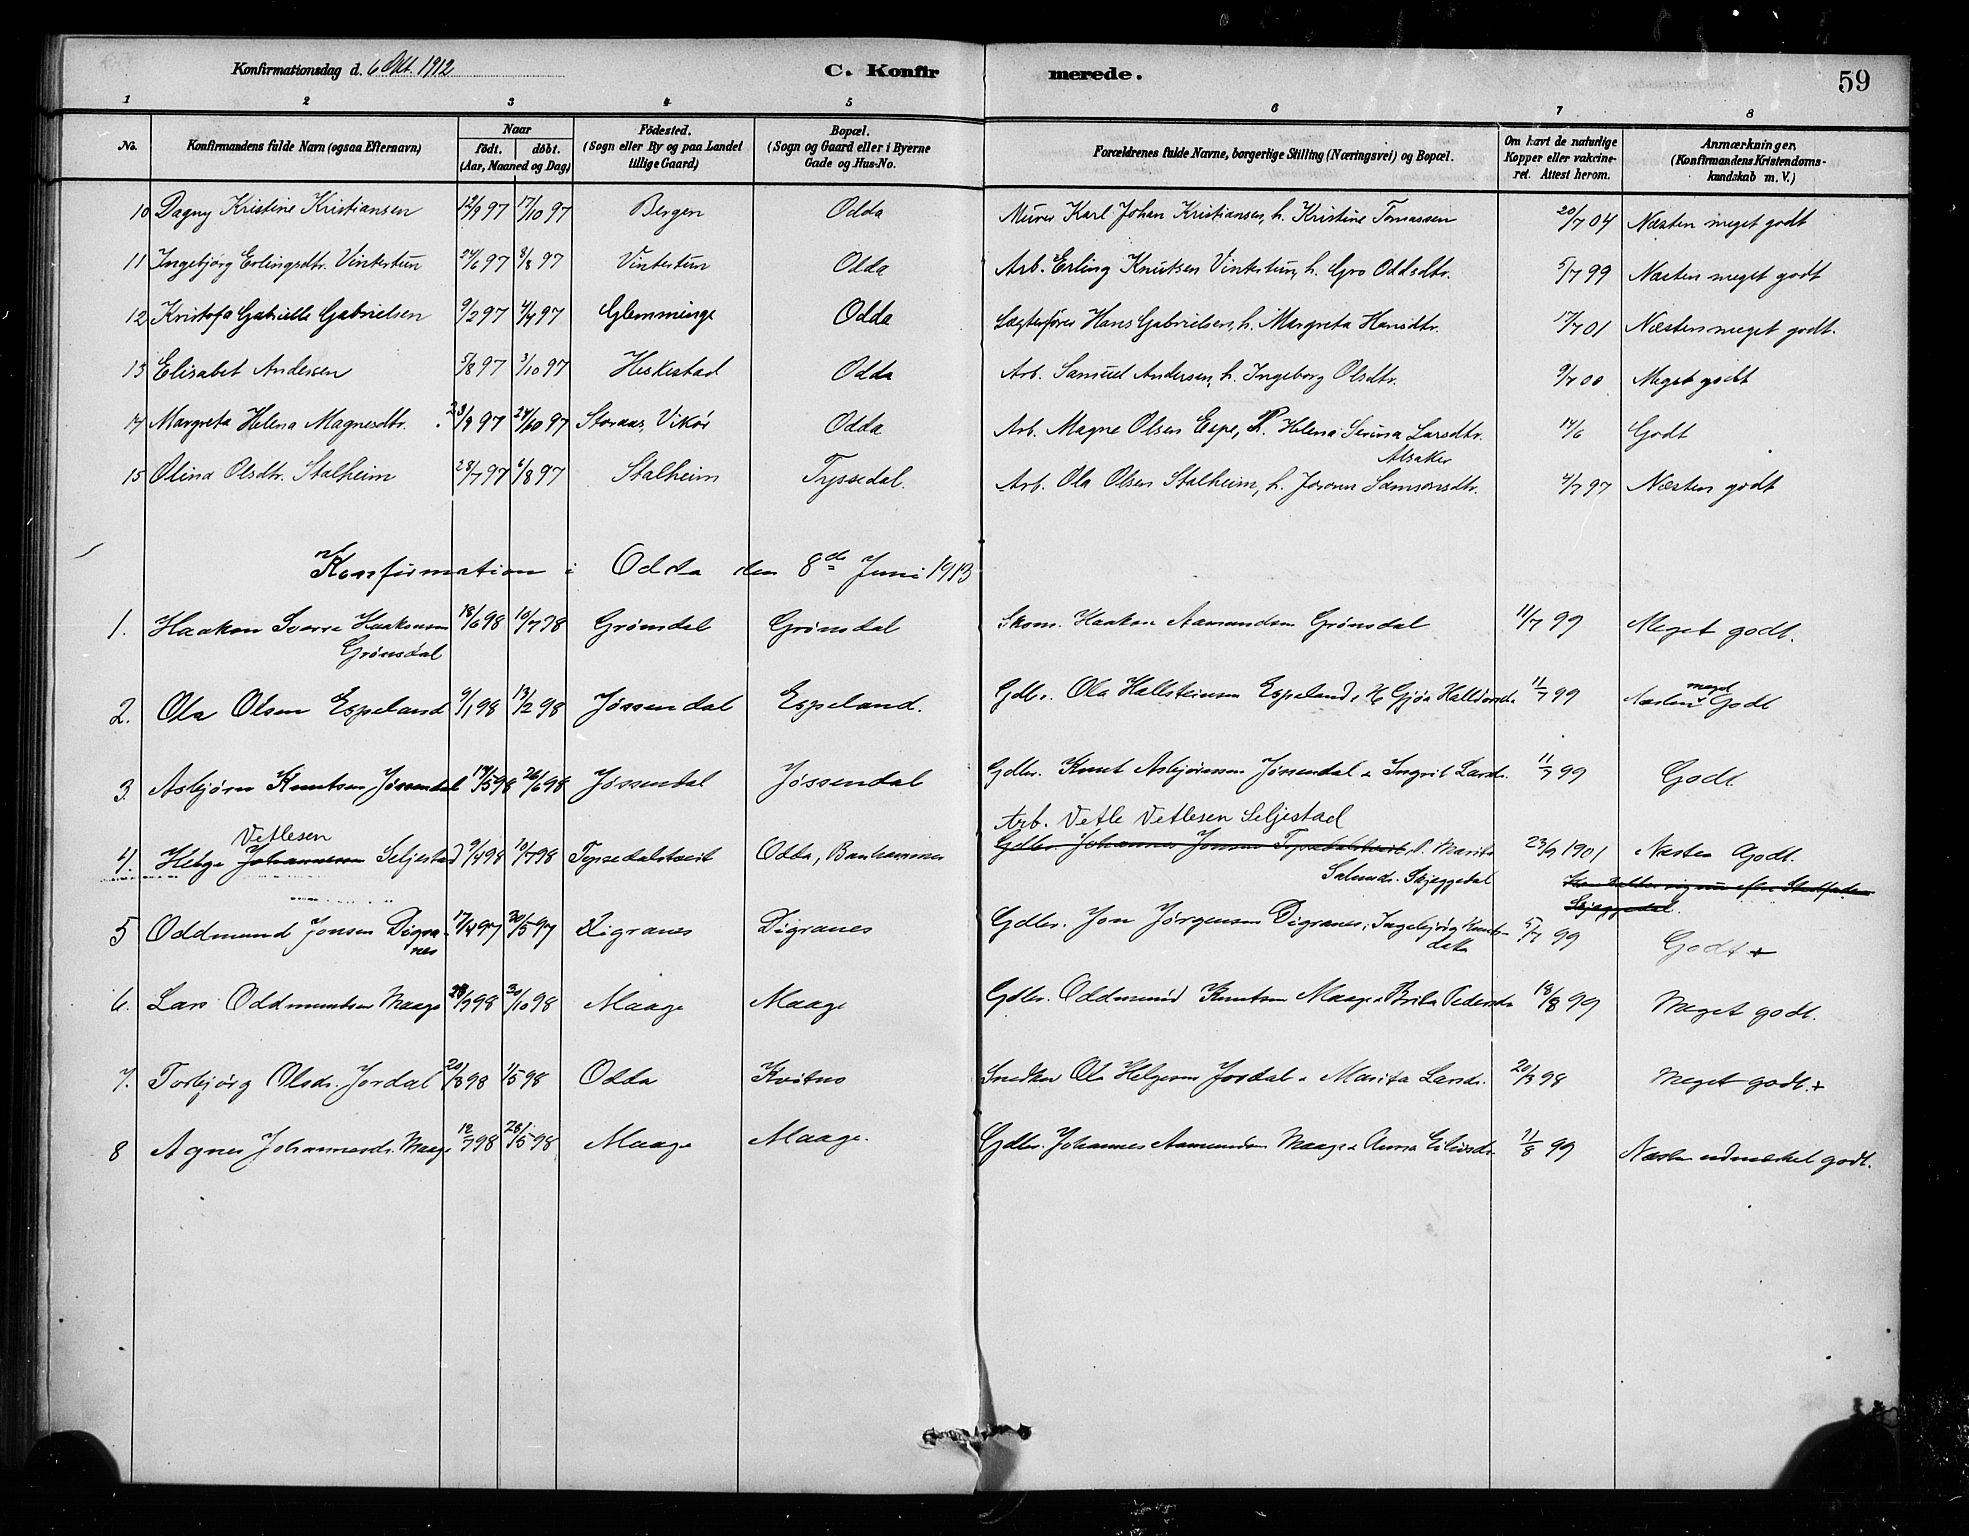 Konfirmationsdag d. 6 Okt. 1912 C. Konfirmerede. 59
1 2 3 4 5 6 7 8
No. Konfirmandens fulde Navn (ogsaa Efternavn) Naar födt. döbt. (Aar, Maaned og Dag) Födested. (Sogn eller By og paa Landet tillige Gaard) Bopæl. (Sogn og Gaard eller i Byerne Gade og Hus-No. Forældrenes fulde Navne, borgerlige Stilling (Næringsvei) og Bopæl. Om havt de naturlige Kopper eller vakcineret. Attest herom. Anmærkninger, (Konfirmandens Kristendomskundskab m. V.)
10 Dagny Kristine Kristiansen 12/9 97 17/10 97 Bergen Odda Murer Karl Johan Kristiansen, h. Kristine Tomassen 20/7 04 Næsten meget godt
11 Ingebjörg Erlingsdtr. Vintertun 24/6 97 8/8 97 Vintertun Odda Arb. Erling Knutsen Vintertun, h. Gro Oddsdtr. 5/7 99 Næsten meget godt
12 Kristofa Gabrielle Gabrielsen 9/2 97 4/4 97 Glemminge Odda Lægterförer Hans Gabrielsen, h. Margreta Hansdtr. 17/7 01 Næsten meget godt.
13 Elisabet Andersen 5/8 97 3/10 97 Heskestad Odda Arb. Samuel Andersen, h. Ingeborg Olsdtr. 9/7 00 Meget godt
14 Margreta Helena Magnesdtr. 23/9 97 24/10 97 Storaas, Vikör Odda Arb. Magne Olsen Espe, h. Helena Serina Larsdtr. Alsaker 14/6 Godt
15 Olina Olsdtr. Stalheim 28/7 97 6/8 97 Stalheim Tyssedal. Arb. Ola Olsen Stalheim, h. Joronn Samsonsdtr. 4/7 97 Næsten godt
Konfirmation i Odda den 8de Juni 1913
1. Haakon Sverre Haakonsen Grönsdal 18/6 98 10/7 98 Grönsdal Grönsdal Skom. Haakon Aamundsen Grönsdal 11/7 99 Meget godt.
2. Ola Olsen Espeland 9/1 98 13/2 98 Jössendal Espeland. Gdbr. Ola Hallsteinsen Espeland, H. Gjöa Halldorsdr. 11/7 99 Næsten meget Godt
3. Asbjörn Knutsen Jössendal 19/5 98 26/6 98 Jössendal Jössendal Gdbr. Knut Asbjörnsen Jössendal & Ingrid Larsdr. 11/7 99 Godt.
Arb. Vetle Vetlesen Seljestad
4. Helge Vetlesen Johannessen Seljestad 9/4 98 10/7 98 Tyssedalstveit Odda, Banhammer Gdbr. Johannes Jonsen Tyssedalstveit, P. Marita Salmundr. Skjeggedal 23/9 1901 Næsten Godt.
Skjeggedal.
5 Oddmund Jonsen Digranes 17/4 97 30/5 97 Digranes Digranes Gdbr. Jon Jörgensen Digranes, Ingebjörg Knutsdatter 5/7 99 Godt +
6. Lars Oddmundsen Maage 28/9 98 30/10 98 Maage Maage Gdbr. Oddmund Knutsen Maage & Brita Pedersdr. 18/8 99 Meget godt.
7. Torbjörg Olsdr. Jordal 20/3 98 1/5 98 Odda Kvitnes Snedker Ola Helgesen Jordal & Marita Larsdr. 20/9 98 Meget godt. +
8 Agnes Johannesdr. Maage 12/3 98 28/5 98 Maage Maage. Gdbr. Johannes Aamundsen Maage & Anna Eilivsdr. 11/8 99 Næsten udmerket godt.